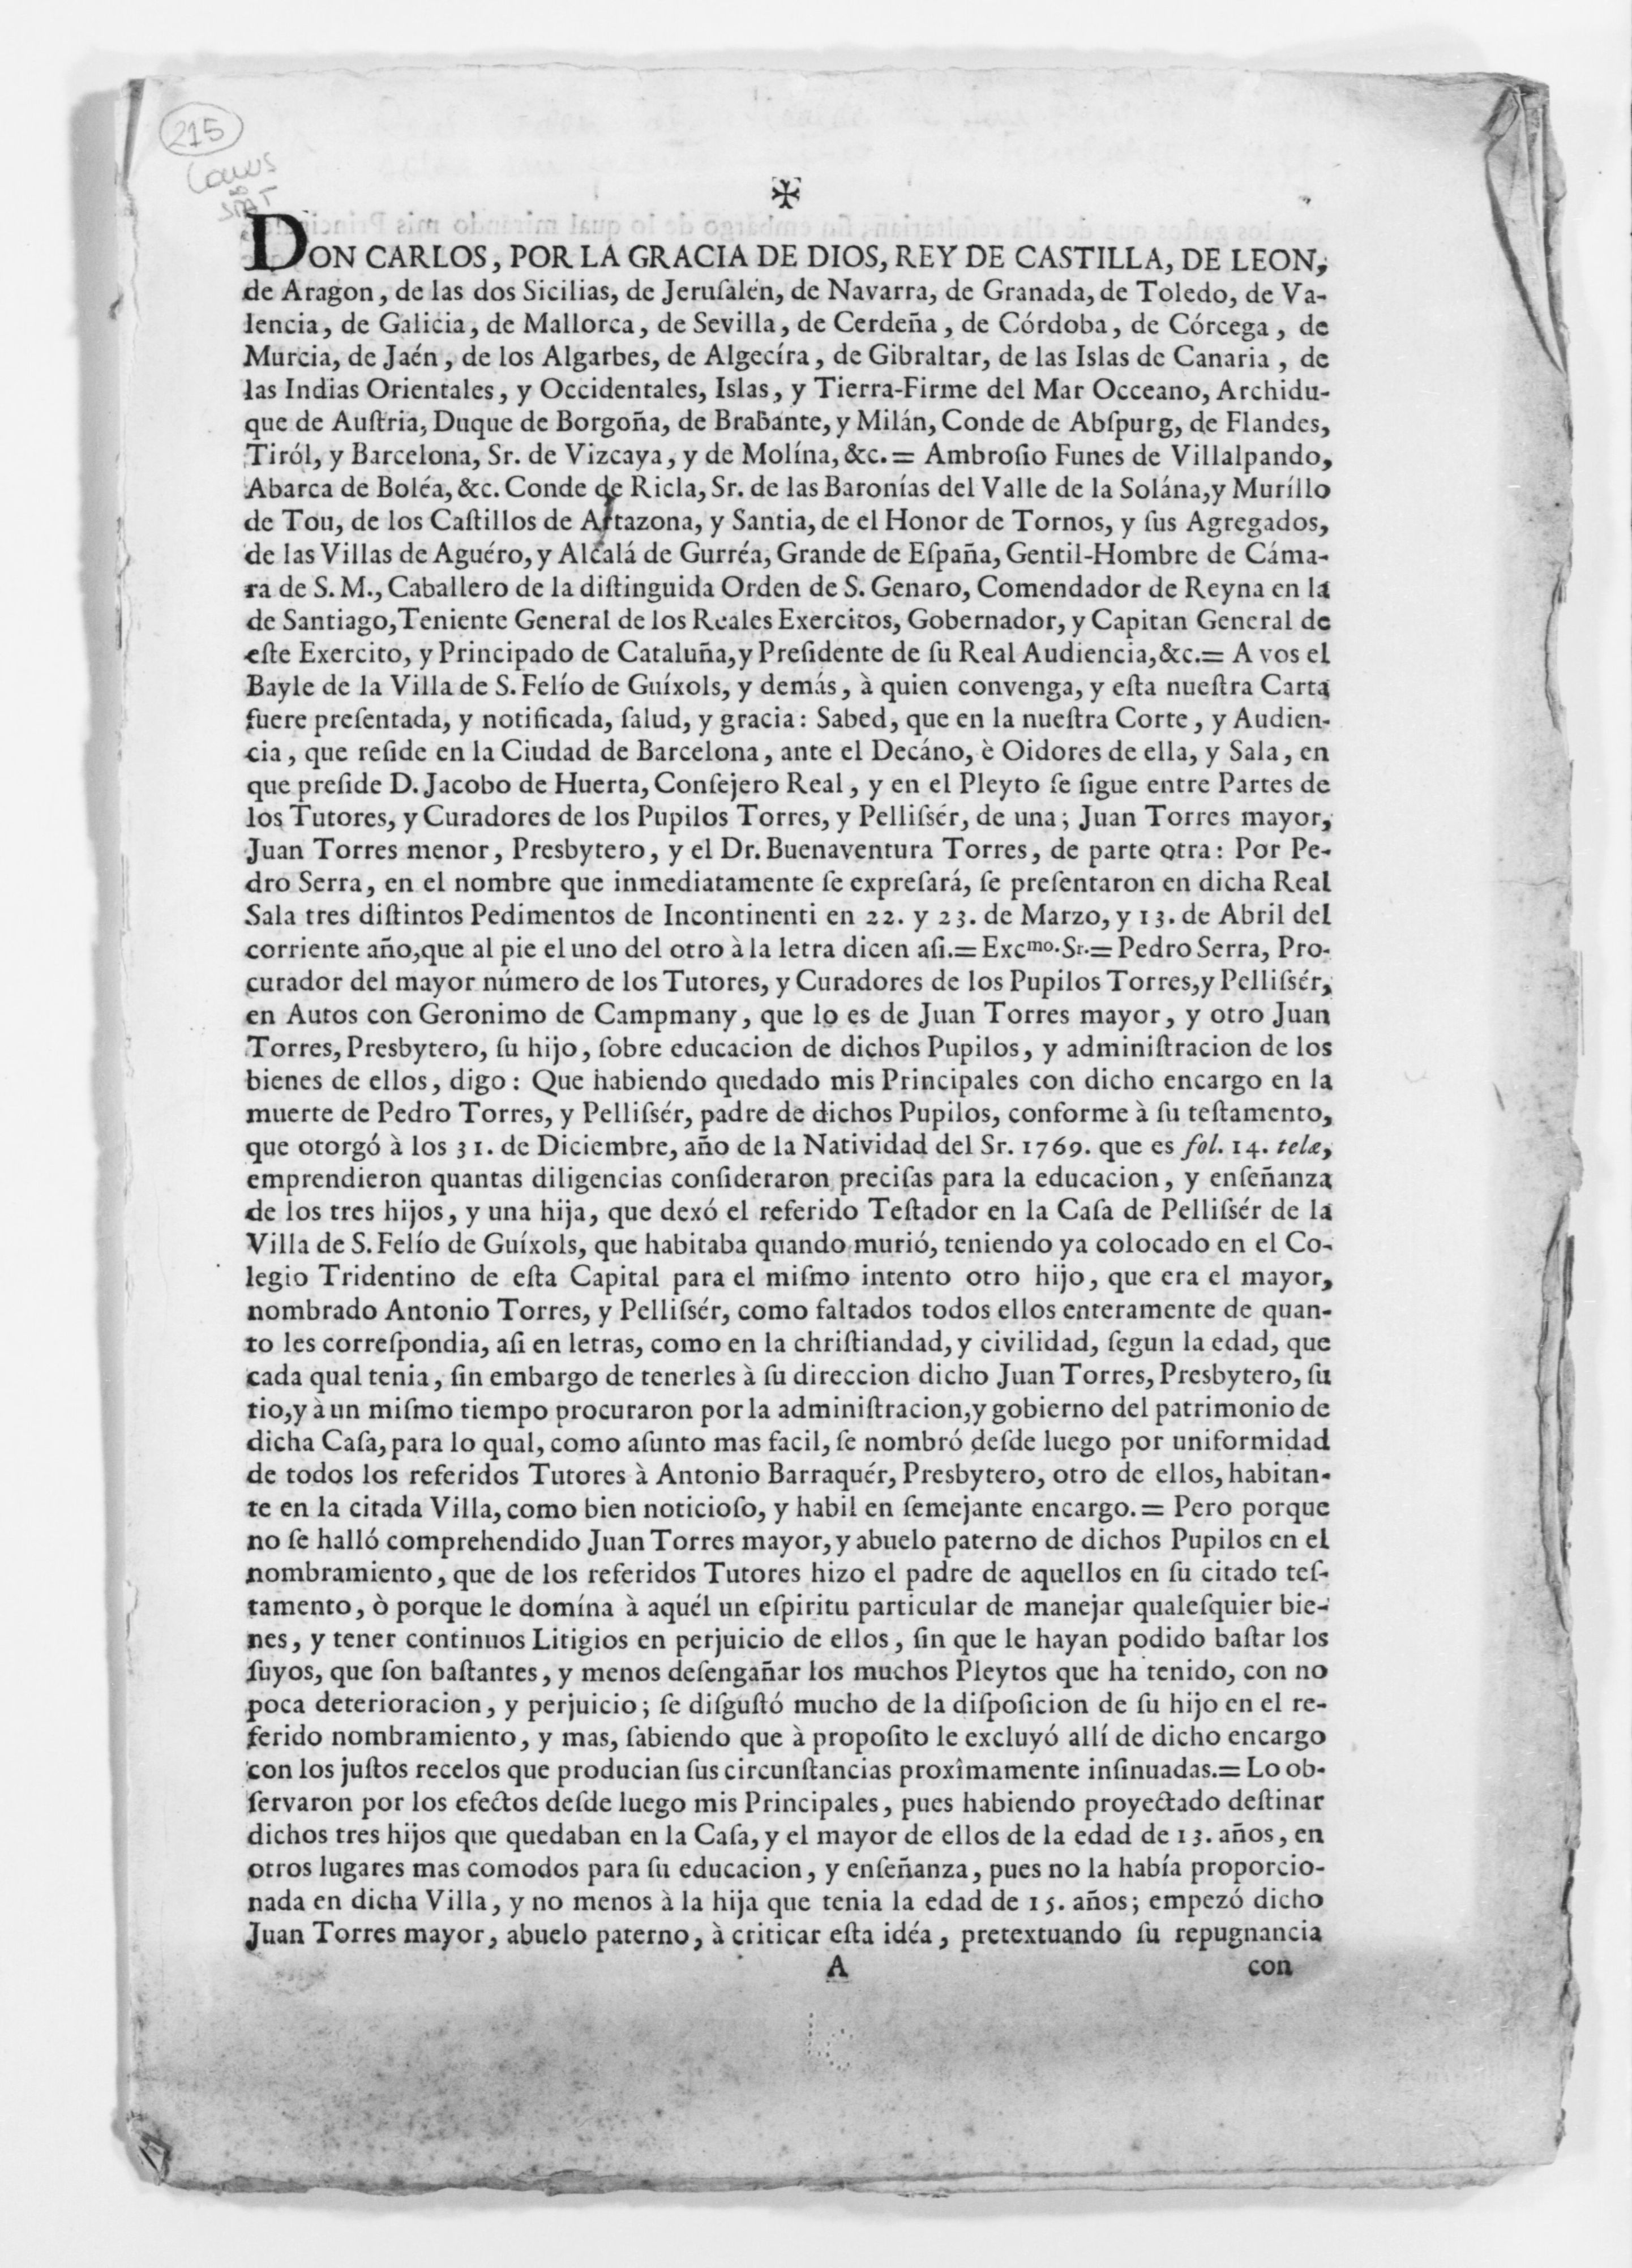 215
✠
DON CARLOS, POR LA GRACIA DE DIOS, REY DE CASTILLA, DE LEON,
de Aragon, de las dos Sicilias, de Jeruſalén, de Navarra, de Granada, de Toledo, de Va-
lencia, de Galicia, de Mallorca, de Sevilla, de Cerdeña, de Córdoba, de Córcega, de
Murcia, de Jaén, de los Algarbes, de Algecíra, de Gibraltar, de las Islas de Canaria, de
las Indias Orientales, y Occidentales, Islas, y Tierra-Firme del Mar Occeano, Archidu-
que de Auſtria, Duque de Borgoña, de Brabante, y Milán, Conde de Abſpurg, de Flandes,
Tiról, y Barcelona, Sr. de Vizcaya, y de Molína, &c. = Ambroſio Funes de Villalpando,
Abarca de Boléa, &c. Conde de Ricla, Sr. de las Baronías del Valle de la Solána, y Muríllo
de Tou, de los Caſtillos de Artazona, y Santia, de el Honor de Tornos, y ſus Agregados,
de las Villas de Aguéro, y Alcalá de Gurréa, Grande de Eſpaña, Gentil-Hombre de Cáma-
ra de S. M., Caballero de la diſtinguida Orden de S. Genaro, Comendador de Reyna en la
de Santiago, Teniente General de los Reales Exercitos, Gobernador, y Capitan General de
eſte Exercito, y Principado de Cataluña, y Preſidente de ſu Real Audiencia, &c. = A vos el
Bayle de la Villa de S. Felío de Guíxols, y demás, à quien convenga, y eſta nueſtra Carta
fuere preſentada, y notificada, ſalud, y gracia: Sabed, que en la nueſtra Corte, y Audien-
cia, que reſide en la Ciudad de Barcelona, ante el Decáno, è Oidores de ella, y Sala, en
que preſide D. Jacobo de Huerta, Conſejero Real, y en el Pleyto ſe ſigue entre Partes de
los Tutores, y Curadores de los Pupilos Torres, y Pelliſsér, de una; Juan Torres mayor,
Juan Torres menor, Presbytero, y el Dr. Buenaventura Torres, de parte otra: Por Pe-
dro Serra, en el nombre que inmediatamente ſe expreſará, ſe preſentaron en dicha Real
Sala tres diſtintos Pedimentos de Incontinenti en 22. y 23. de Marzo, y 13. de Abril del
corriente año, que al pie el uno del otro à la letra dicen aſi. = Excmo. Sr. = Pedro Serra, Pro-
curador del mayor número de los Tutores, y Curadores de los Pupilos Torres, y Pelliſsér,
en Autos con Geronimo de Campmany, que lo es de Juan Torres mayor, y otro Juan
Torres, Presbytero, ſu hijo, ſobre educacion de dichos Pupilos, y adminiſtracion de los
bienes de ellos, digo: Que habiendo quedado mis Principales con dicho encargo en la
muerte de Pedro Torres, y Pelliſsér, padre de dichos Pupilos, conforme à ſu teſtamento,
que otorgó à los 31. de Diciembre, año de la Natividad del Sr. 1769. que es fol. 14. telæ,
emprendieron quantas diligencias conſideraron preciſas para la educacion, y enſeñanza
de los tres hijos, y una hija, que dexó el referido Teſtador en la Caſa de Pelliſsér de la
Villa de S. Felío de Guíxols, que habitaba quando murió, teniendo ya colocado en el Co-
legio Tridentino de eſta Capital para el miſmo intento otro hijo, que era el mayor,
nombrado Antonio Torres, y Pelliſsér, como faltados todos ellos enteramente de quan-
to les correſpondia, aſi en letras, como en la chriſtiandad, y civilidad, ſegun la edad, que
cada qual tenia, ſin embargo de tenerles à ſu direccion dicho Juan Torres, Presbytero, ſu
tio, y à un miſmo tiempo procuraron por la adminiſtracion, y gobierno del patrimonio de
dicha Caſa, para lo qual, como aſunto mas facil, ſe nombró deſde luego por uniformidad
de todos los referidos Tutores à Antonio Barraquér, Presbytero, otro de ellos, habitan-
te en la citada Villa, como bien noticioſo, y habil en ſemejante encargo. = Pero porque
no ſe halló comprehendido Juan Torres mayor, y abuelo paterno de dichos Pupilos en el
nombramiento, que de los referidos Tutores hizo el padre de aquellos en ſu citado teſ-
tamento, ò porque le domína à aquél un eſpiritu particular de manejar qualeſquier bie-
nes, y tener continuos Litigios en perjuicio de ellos, ſin que le hayan podido baſtar los
ſuyos, que ſon baſtantes, y menos deſengañar los muchos Pleytos que ha tenido, con no
poca deterioracion, y perjuicio; ſe diſguſtó mucho de la diſpoſicion de ſu hijo en el re-
ferido nombramiento, y mas, ſabiendo que à propoſito le excluyó allí de dicho encargo
con los juſtos recelos que producian ſus circunſtancias proxîmamente inſinuadas. = Lo ob-
ſervaron por los efectos deſde luego mis Principales, pues habiendo proyectado deſtinar
dichos tres hijos que quedaban en la Caſa, y el mayor de ellos de la edad de 13. años, en
otros lugares mas comodos para ſu educacion, y enſeñanza, pues no la había proporcio-
nada en dicha Villa, y no menos à la hija que tenia la edad de 15. años; empezó dicho
Juan Torres mayor, abuelo paterno, à criticar eſta idéa, pretextuando ſu repugnancia
A con